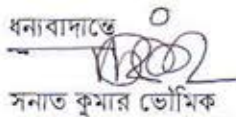 ধন্যবাদান্তে
সনাত কুমার ভৌমিক